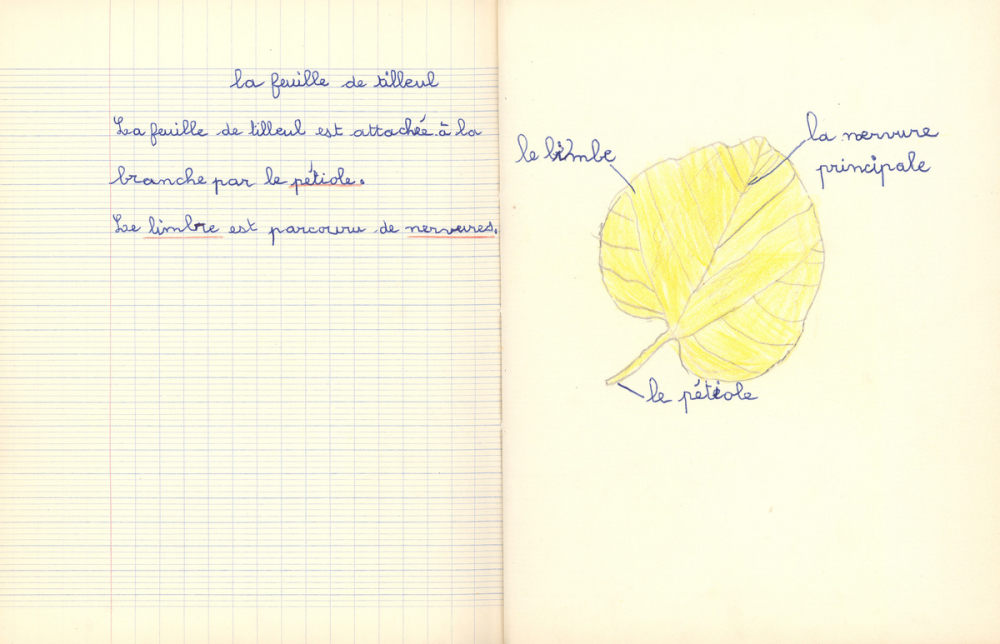 la feuille de tilleul
La feuille de tilleul est attachée à la
branche par le pétiole.
Le limbre est parcouru de nervures.
le limbe
la nervure
principale
le pétiole